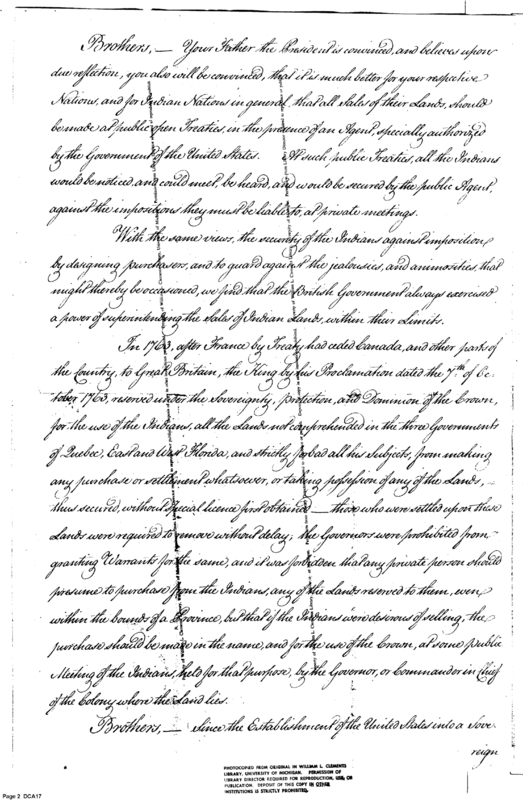 Brothers, — Your Father the President is convinced, and believes upon
due reflection, you also will be convinced, that it is much better for your respective
Nations, and for Indian Nations in general, that all Sales of their Lands, should
be made at public open Treaties, in the presence of an Agent, specially authorized
by the Government of the United States. At such, public Treaties, all the Indians
would be noticed, and could meet, be heard, and would be secured by the public Agent,
against the impositions they must be liable to, at private meetings.
With the same views, the security of the Indians against imposition,
by designing purchasers, and to guard against the jealousies, and animosities, that
might thereby be occasioned, we find that the British Government always exercised
a power of superintending the Sales of Indian Lands, within their Limits.
In 1763, after France by Treaty had ceded Canada, and other parts of
the Country, to Great Britain, the King by his Proclamation dated the 7th of Oc-
tober 1763, reserved under the Sovereignty, protection, and Dominion of the Crown,
for the use of the Indians, all the Lands not comprehended in the three Governments
of Quebec, East and West Florida, and strictly forbad all his Subjects, from making
any purchase or settlement whatsoever, or taking possession of any of the Lands,
thus secured, without special licence first obtained — those who were settled upon these
Lands were required to remove without delay; the Governors were prohibited from
granting Warrants for the same, and it was forbidden that any private person should
presume to purchase from the Indians, any of the Lands reserved to them, even
within the bounds of a Province, but that if the Indians were desirous of selling, the
purchase should be made in the name, and for the use of the Crown, at some public
Meeting of the Indians, held for that purpose, by the Governor, or Commander in Chief
of the Colony where the Land lies.
Brothers, — Since the Establishment of the United States into a Sove-
reign
PHOTOCOPIED FROM ORIGINAL IN WILLIAM L. CLEMENTS
LIBRARY, UNIVERSITY OF MICHIGAN. PERMISSION OF
LIBRARY DIRECTOR REQUIRED FOR REPRODUCTION, USE, OR
PUBLICATION. DEPOSIT OF THIS COPY IN OTHER
INSTITUTIONS IS STRICTLY PROHIBITED.
Page 2 DCA17